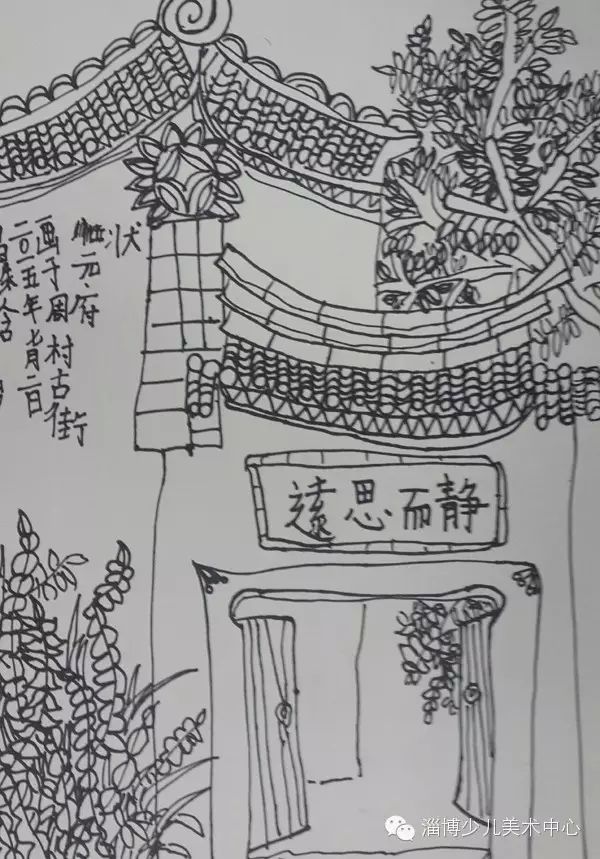 静而思遠
状元·府
画于周村古街
二〇一五年七月二日
淄博少儿美术中心